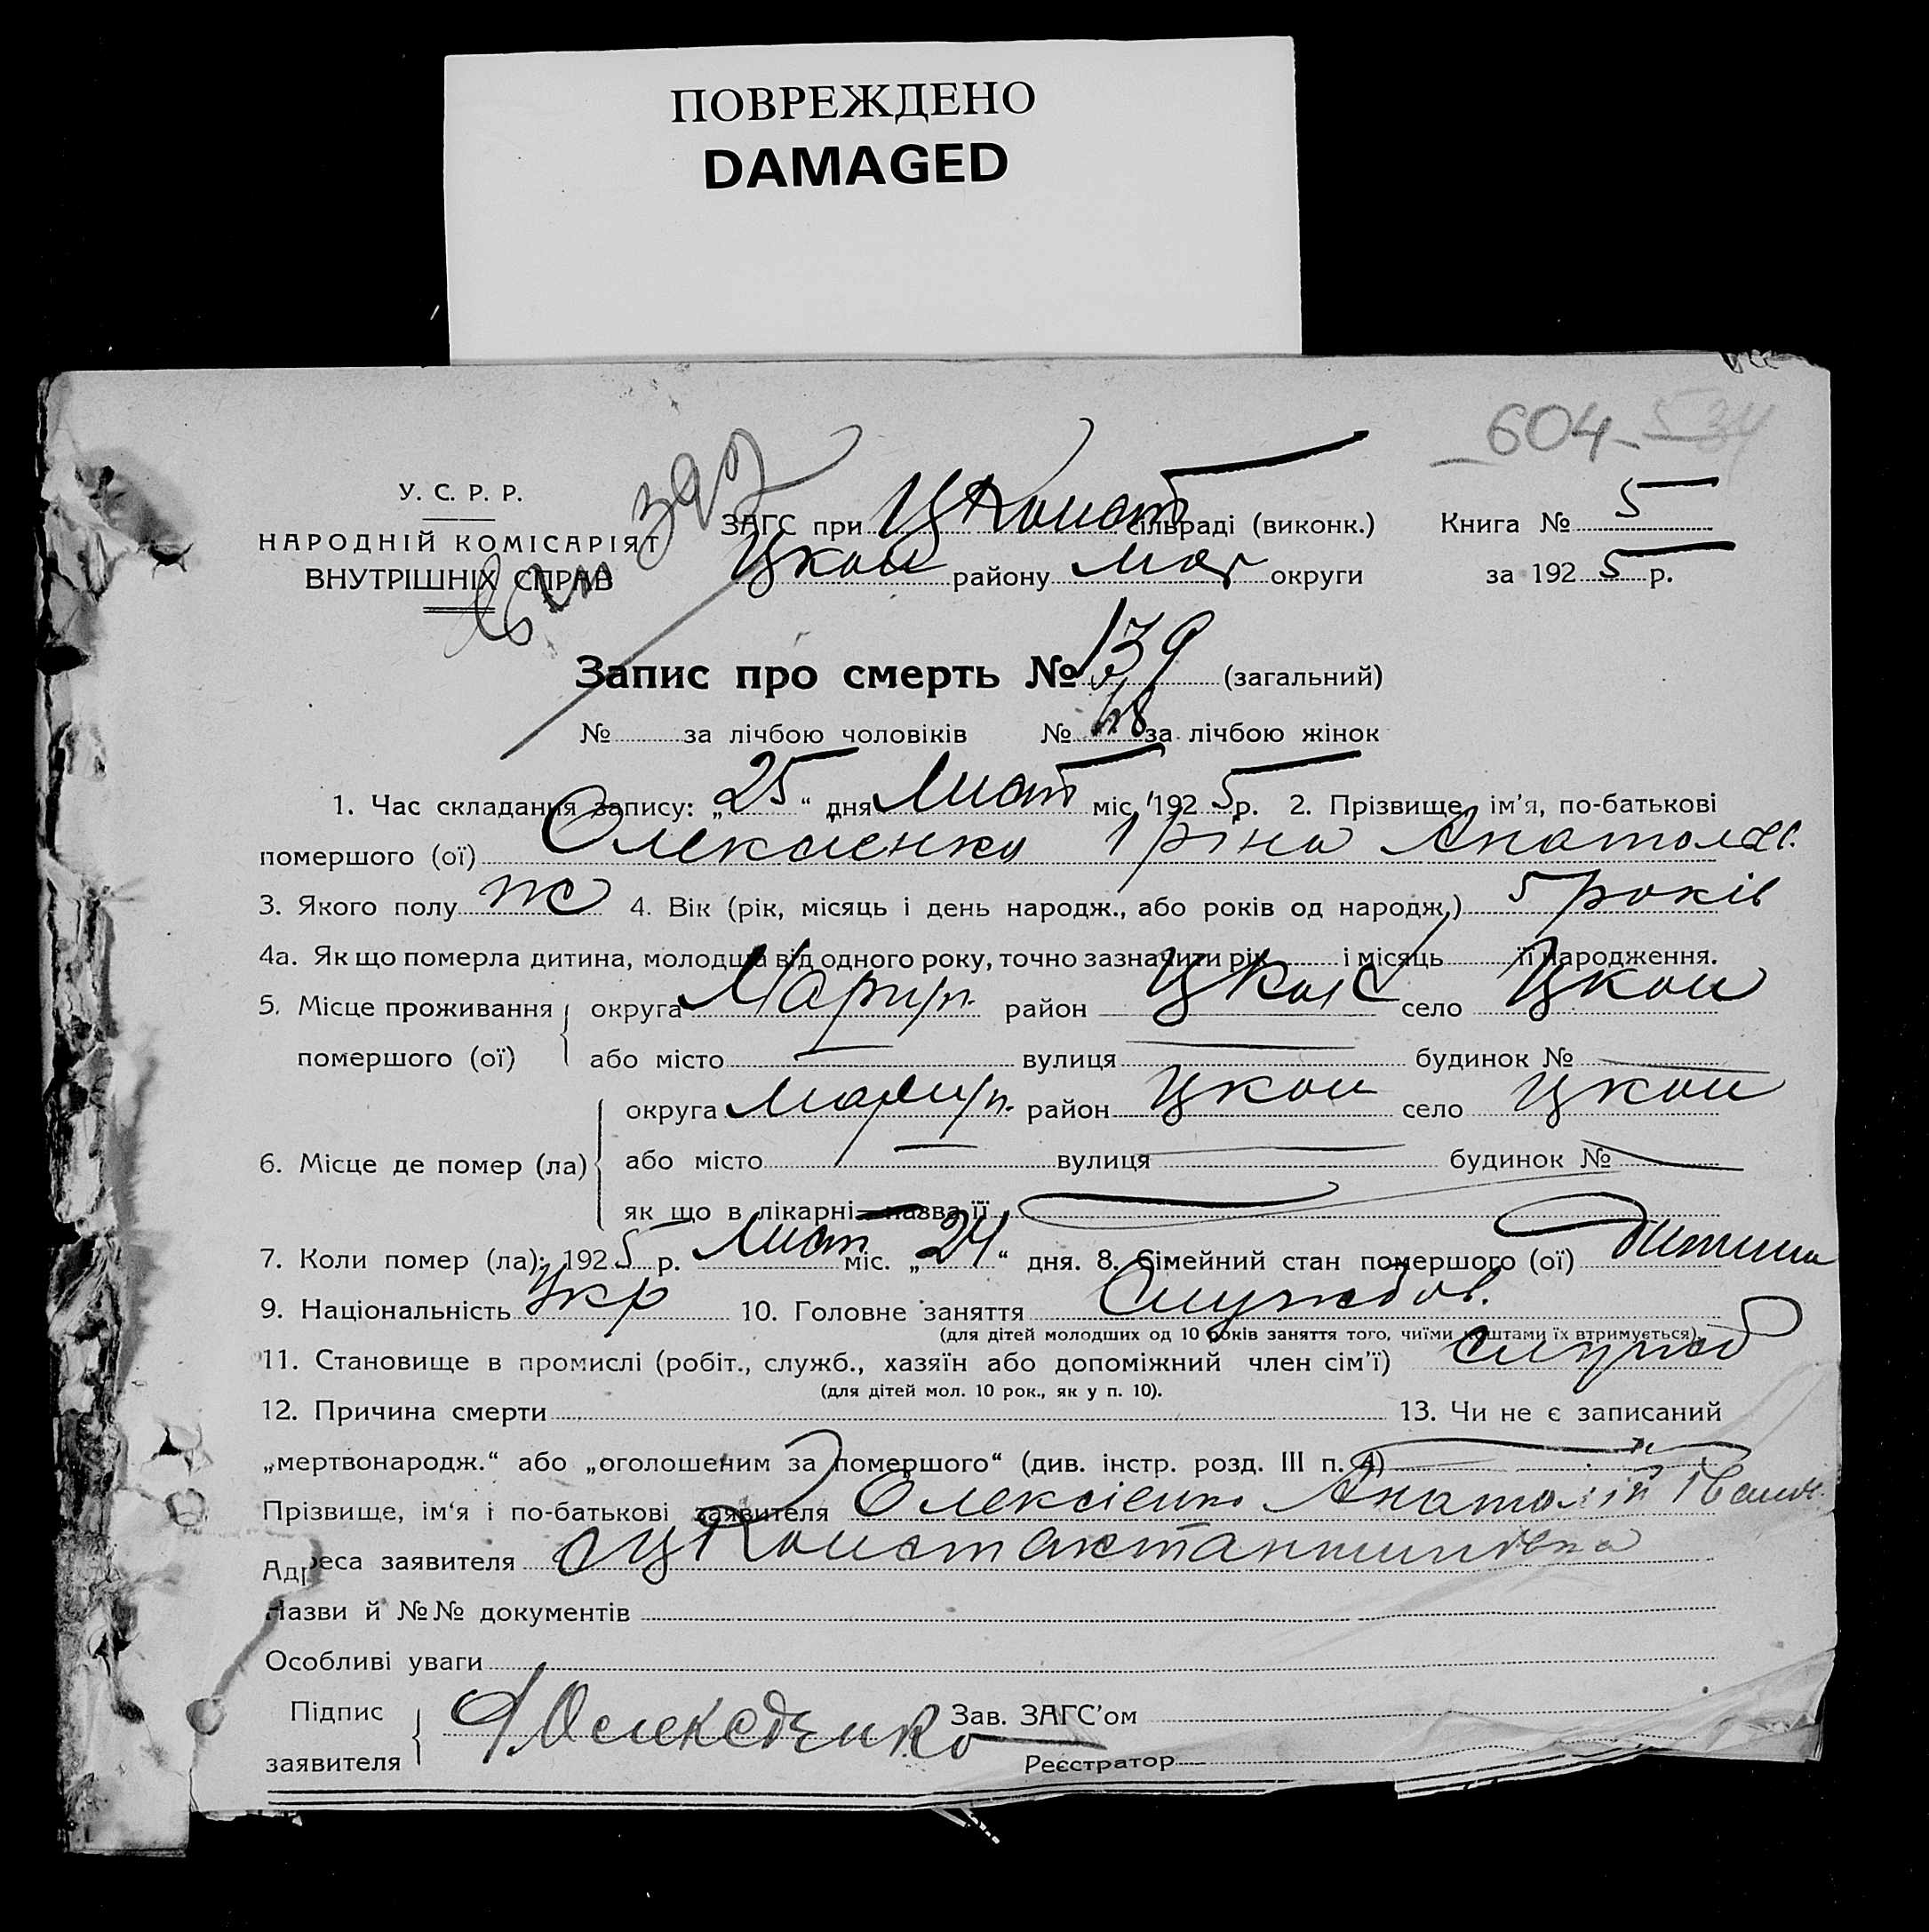 ПОВРЕЖДЕНО
DAMAGED
604- 534
397
У. С. Р. Р.
НАРОДНІЙ КОМІСАРІЯТ
ВНУТРІШНІХ СПРАВ
ЗАГС при ЦКонст сільраді (виконк.) Книга № 5
Цкон району Мар округи за 192 5 р.
Запис про смерть № 139 (загальний)
№ за лічбою чоловіків № 68 за лічбою жінок
1. Час складання запису: „25“ дня Лист міс. 192 5 р. 2. Прізвище, ім’я, по-батькові
помершого (ої) Олексієнко Іріна Анатол.
3. Якого полу ж 4. Вік (рік, місяць і день народж., або років од народж.) 5 років
4а. Як що померла дитина, молодша від одного року, точно зазначити рік і місяць її народження.
5. Місце проживання помершого (ої) округа Маріуп. район Цкон село Цкон
або місто — вулиця — будинок № —
6. Місце де помер (ла) округа Маріуп. район Цкон село Цкон
або місто — вулиця — будинок № —
як що в лікарні—назва її —
7. Коли помер (ла): 192 5 р. Лист міс. „24“ дня. 8. Сімейний стан помершого (ої) дитина
9. Національність Укр 10. Головне заняття Службов.
(для дітей молодших од 10 років заняття того, чиїми коштами їх втримується).
11. Становище в промислі (робіт., служб., хазяїн або допоміжний член сім’ї) служб
(для дітей мол. 10 рок., як у п. 10).
12. Причина смерти 13. Чи не є записаний
„мертвонародж.“ або „оголошеним за помершого“ (див. інстр. розд. III п. 4)
Прізвище, ім‘я і по-батькові заявителя Олексієнко Анатолій Іванов.
Адреса заявителя
Назви й №№ документів
Особливі уваги
Підпис заявителя А Олексєенко Зав. ЗАГС’ом
Реєстратор